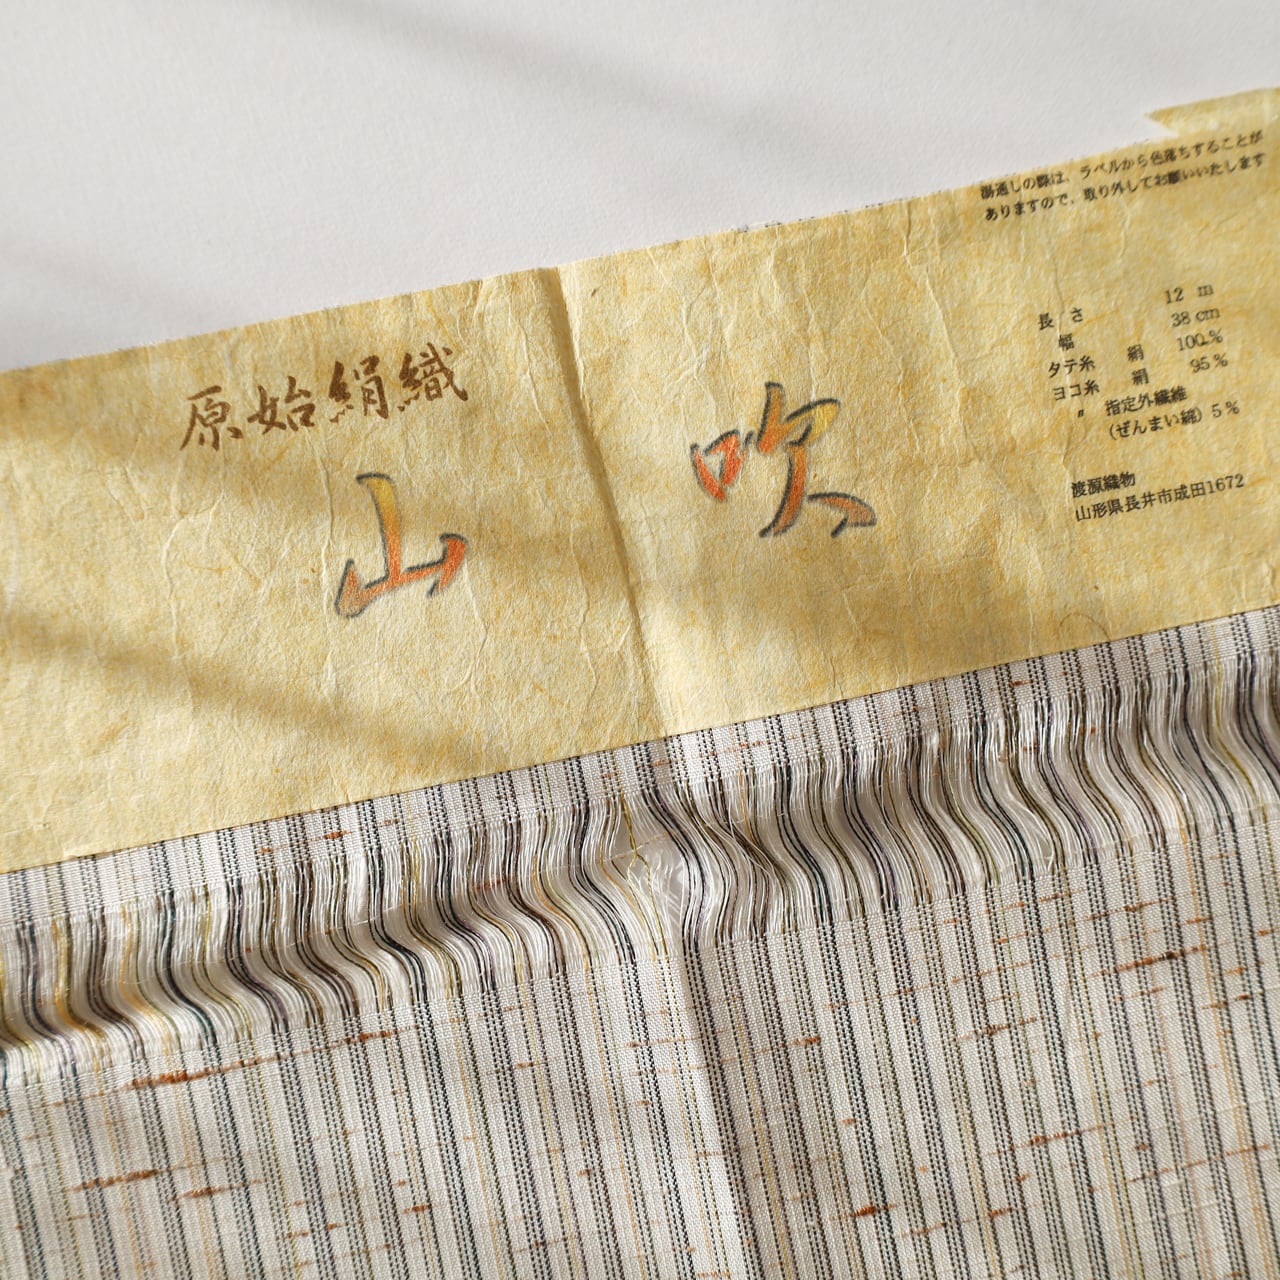 原始絹織
山吹
湯通しの際は、ラベルから色落ちすることが
ありますので、取り外してお願いいたします
長さ 12 m
幅 38 cm
タテ糸 絹 100%
ヨコ糸 絹 95%
〃 指定外繊維
(ぜんまい綿) 5%
渡源織物
山形県長井市成田1672